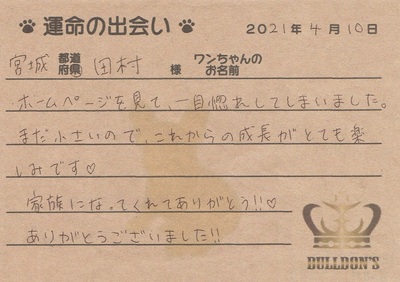 運命の出会い 2021年4月10日
宮城 都道府県 田村 様 ワンちゃんのお名前
ホームページを見て、一目惚れしてしまいました。
まだ小さいので、これからの成長がとても楽
しみです♡
家族になってくれてありがとう!!♡
ありがとうございました!!
BULLDON'S